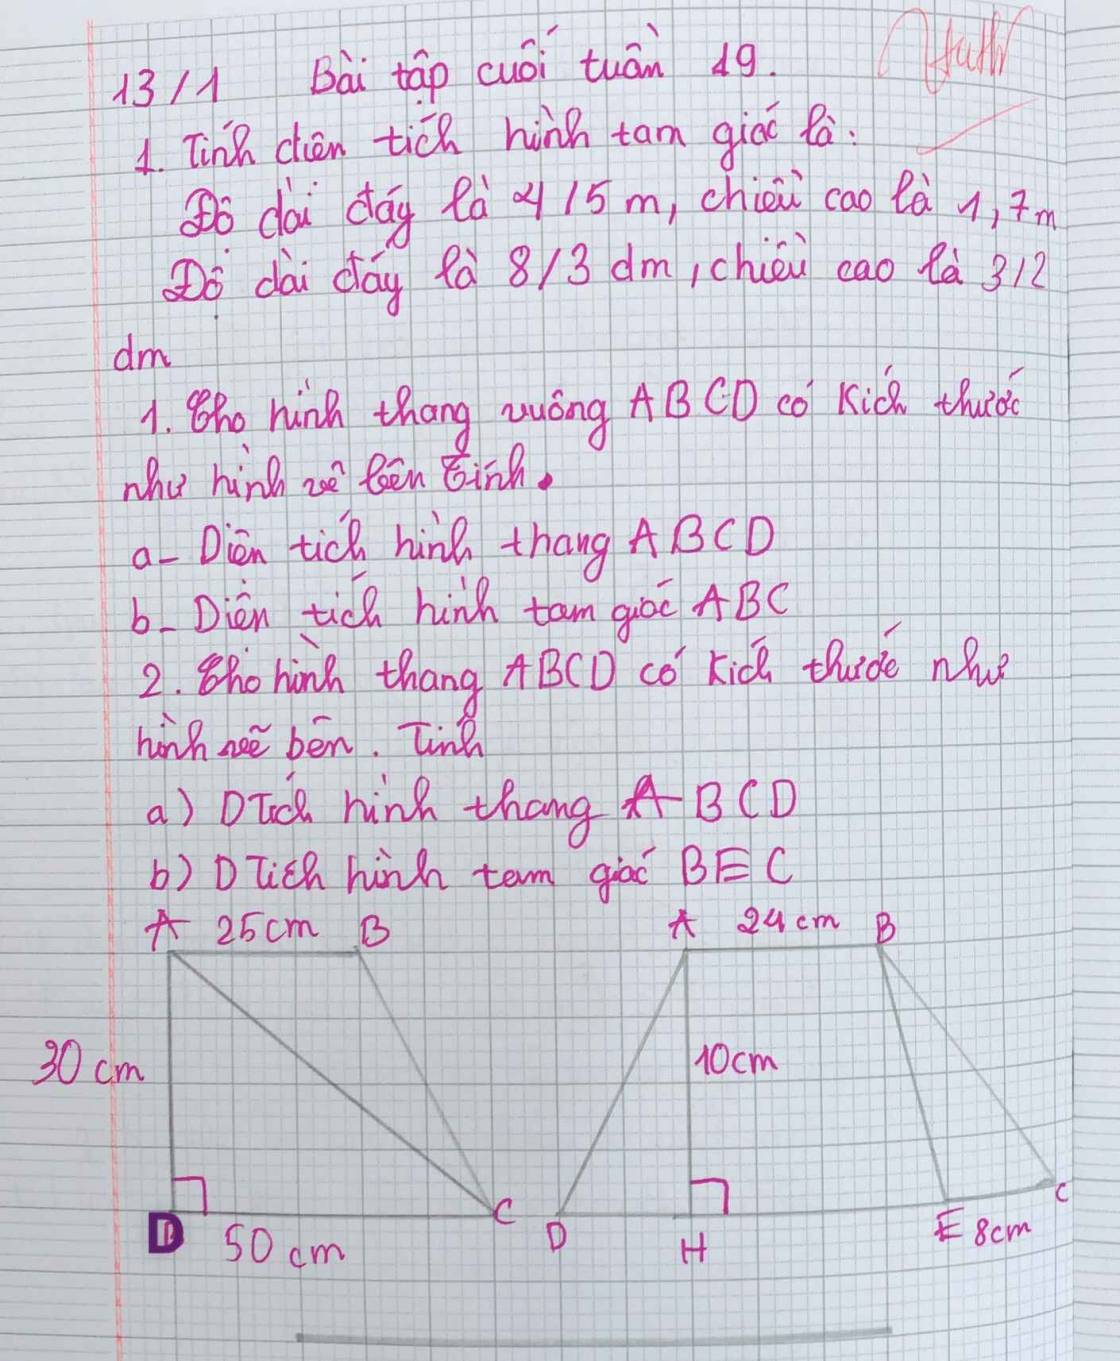 13/1 Bài tập cuối tuần 19.
1. Tính diện tích hình tam giác là:
Độ dài đáy là 4/5 m, chiều cao là 1,7m
Độ dài đáy là 8/3 dm, chiều cao là 3/2
dm
1. Cho hình thang vuông ABCD có kích thước
như hình vẽ bên tính.
a- Diện tích hình thang ABCD
b- Diện tích hình tam giác ABC
2. Cho hình thang ABCD có kích thước như
hình vẽ bên. Tính
a) DTích hình thang ABCD
b) DTích hình tam giác BEC
A 25cm B
A 24cm B
30 cm
10cm
D 50 cm C
D H E 8cm C